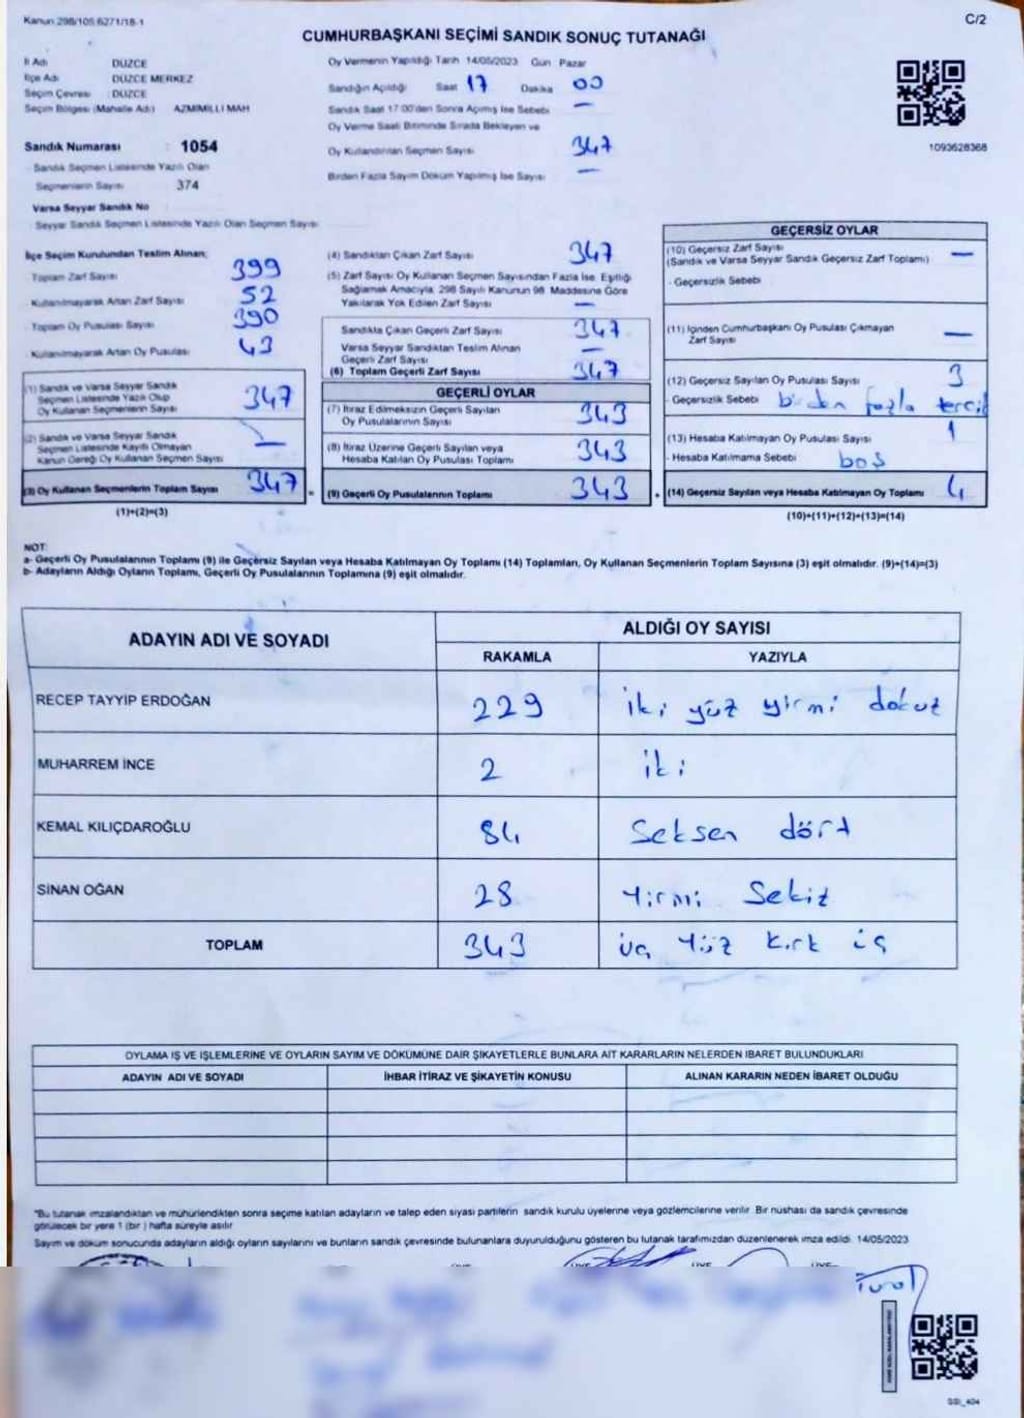 Kanun 298/105 6271/18-1
C/2
CUMHURBAŞKANI SEÇİMİ SANDIK SONUÇ TUTANAĞI
İl Adı DÜZCE
İlçe Adı DÜZCE MERKEZ
Seçim Çevresi : DÜZCE
Seçim Bölgesi (Mahalle Adı) AZMİMİLLİ MAH
Sandık Numarası : 1054
Sandık Seçmen Listesinde Yazılı Olan
Seçmenlerin Sayısı 374
Varsa Seyyar Sandık No
Seyyar Sandık Seçmen Listesinde Yazılı Olan Seçmen Sayısı
Oy Vermenin Yapıldığı Tarih 14/05/2023 Gün Pazar
Sandığın Açıldığı Saat 17 Dakika 00
Sandık Saat 17:00'den Sonra Açılmış İse Sebebi —
Oy Verme Saati Bitiminde Sırada Bekleyen ve
Oy Kullandırılan Seçmen Sayısı 347
Birden Fazla Sayım Döküm Yapılmış İse Sayısı —
1093628368
İlçe Seçim Kurulundan Teslim Alınan;
Toplam Zarf Sayısı 399
Kullanılmayarak Artan Zarf Sayısı 52
Toplam Oy Pusulası Sayısı 390
Kullanılmayarak Artan Oy Pusulası 43
(1) Sandık ve Varsa Seyyar Sandık
Seçmen Listesinde Yazılı Olup
Oy Kullanan Seçmenlerin Sayısı 347
(2) Sandık ve Varsa Seyyar Sandık
Seçmen Listesinde Kayıtlı Olmayan
Kanun Gereği Oy Kullanan Seçmen Sayısı —
(3) Oy Kullanan Seçmenlerin Toplam Sayısı 347 =
(1)+(2)=(3)
(4) Sandıktan Çıkan Zarf Sayısı 347
(5) Zarf Sayısı Oy Kullanan Seçmen Sayısından Fazla İse, Eşitliği
Sağlamak Amacıyla, 298 Sayılı Kanunun 98. Maddesine Göre
Yakılarak Yok Edilen Zarf Sayısı —
Sandıkta Çıkan Geçerli Zarf Sayısı 347
Varsa Seyyar Sandıktan Teslim Alınan
Geçerli Zarf Sayısı —
(6) Toplam Geçerli Zarf Sayısı 347
GEÇERLİ OYLAR
(7) İtiraz Edilmeksizin Geçerli Sayılan
Oy Pusulalarının Sayısı 343
(8) İtiraz Üzerine Geçerli Sayılan veya
Hesaba Katılan Oy Pusulası Toplamı 343
(9) Geçerli Oy Pusulalarının Toplamı 343 +
GEÇERSİZ OYLAR
(10) Geçersiz Zarf Sayısı
(Sandık ve Varsa Seyyar Sandık Geçersiz Zarf Toplamı) —
- Geçersizlik Sebebi
(11) İçinden Cumhurbaşkanı Oy Pusulası Çıkmayan
Zarf Sayısı —
(12) Geçersiz Sayılan Oy Pusulası Sayısı 3
- Geçersizlik Sebebi birden fazla tercih
(13) Hesaba Katılmayan Oy Pusulası Sayısı 1
- Hesaba Katılmama Sebebi boş
(14) Geçersiz Sayılan veya Hesaba Katılmayan Oy Toplamı 4
(10)+(11)+(12)+(13)=(14)
NOT:
a- Geçerli Oy Pusulalarının Toplamı (9) ile Geçersiz Sayılan veya Hesaba Katılmayan Oy Toplamı (14) Toplamları, Oy Kullanan Seçmenlerin Toplam Sayısına (3) eşit olmalıdır. (9)+(14)=(3)
b- Adayların Aldığı Oyların Toplamı, Geçerli Oy Pusulalarının Toplamına (9) eşit olmalıdır.
ADAYIN ADI VE SOYADI ALDIĞI OY SAYISI
RAKAMLA YAZIYLA
RECEP TAYYİP ERDOĞAN 229 iki yüz yirmi dokuz
MUHARREM İNCE 2 iki
KEMAL KILIÇDAROĞLU 84 Seksen dört
SİNAN OĞAN 28 Yirmi Sekiz
TOPLAM 343 üç Yüz kırk üç
OYLAMA İŞ VE İŞLEMLERİNE VE OYLARIN SAYIM VE DÖKÜMÜNE DAİR ŞİKAYETLERLE BUNLARA AİT KARARLARIN NELERDEN İBARET BULUNDUKLARI
ADAYIN ADI VE SOYADI İHBAR İTİRAZ VE ŞİKAYETİN KONUSU ALINAN KARARIN NEDEN İBARET OLDUĞU
"Bu tutanak imzalandıktan ve mühürlendikten sonra seçime katılan adayların ve talep eden siyasi partilerin sandık kurulu üyelerine veya gözlemcilerine verilir. Bir nüshası da sandık çevresinde
görülecek bir yere 1 (bir) hafta süreyle asılır
Sayım ve döküm sonucunda adayların aldığı oyların sayılarını ve bunların sandık çevresinde bulunanlara duyurulduğunu gösteren bu tutanak tarafımızdan düzenlenerek imza edildi. 14/05/2023